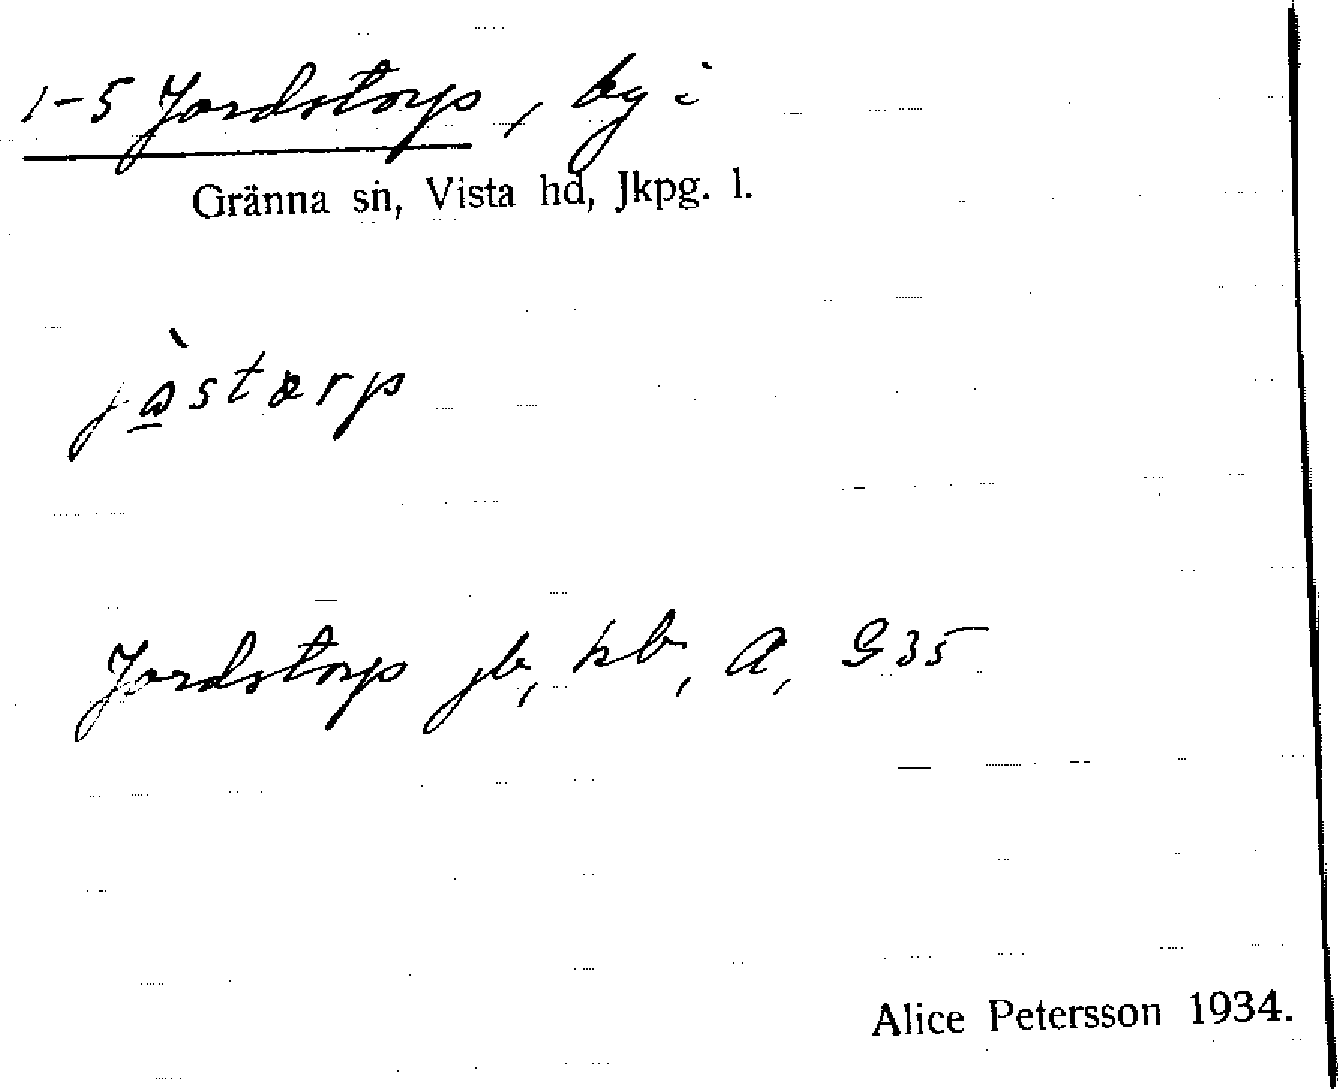 1-5 Jordstorp, by i
Gränna sn, Vista hd, Jkpg. l.
jàstærp
Jordstorp jb, kb, A, G35
Alice Petersson 1934.